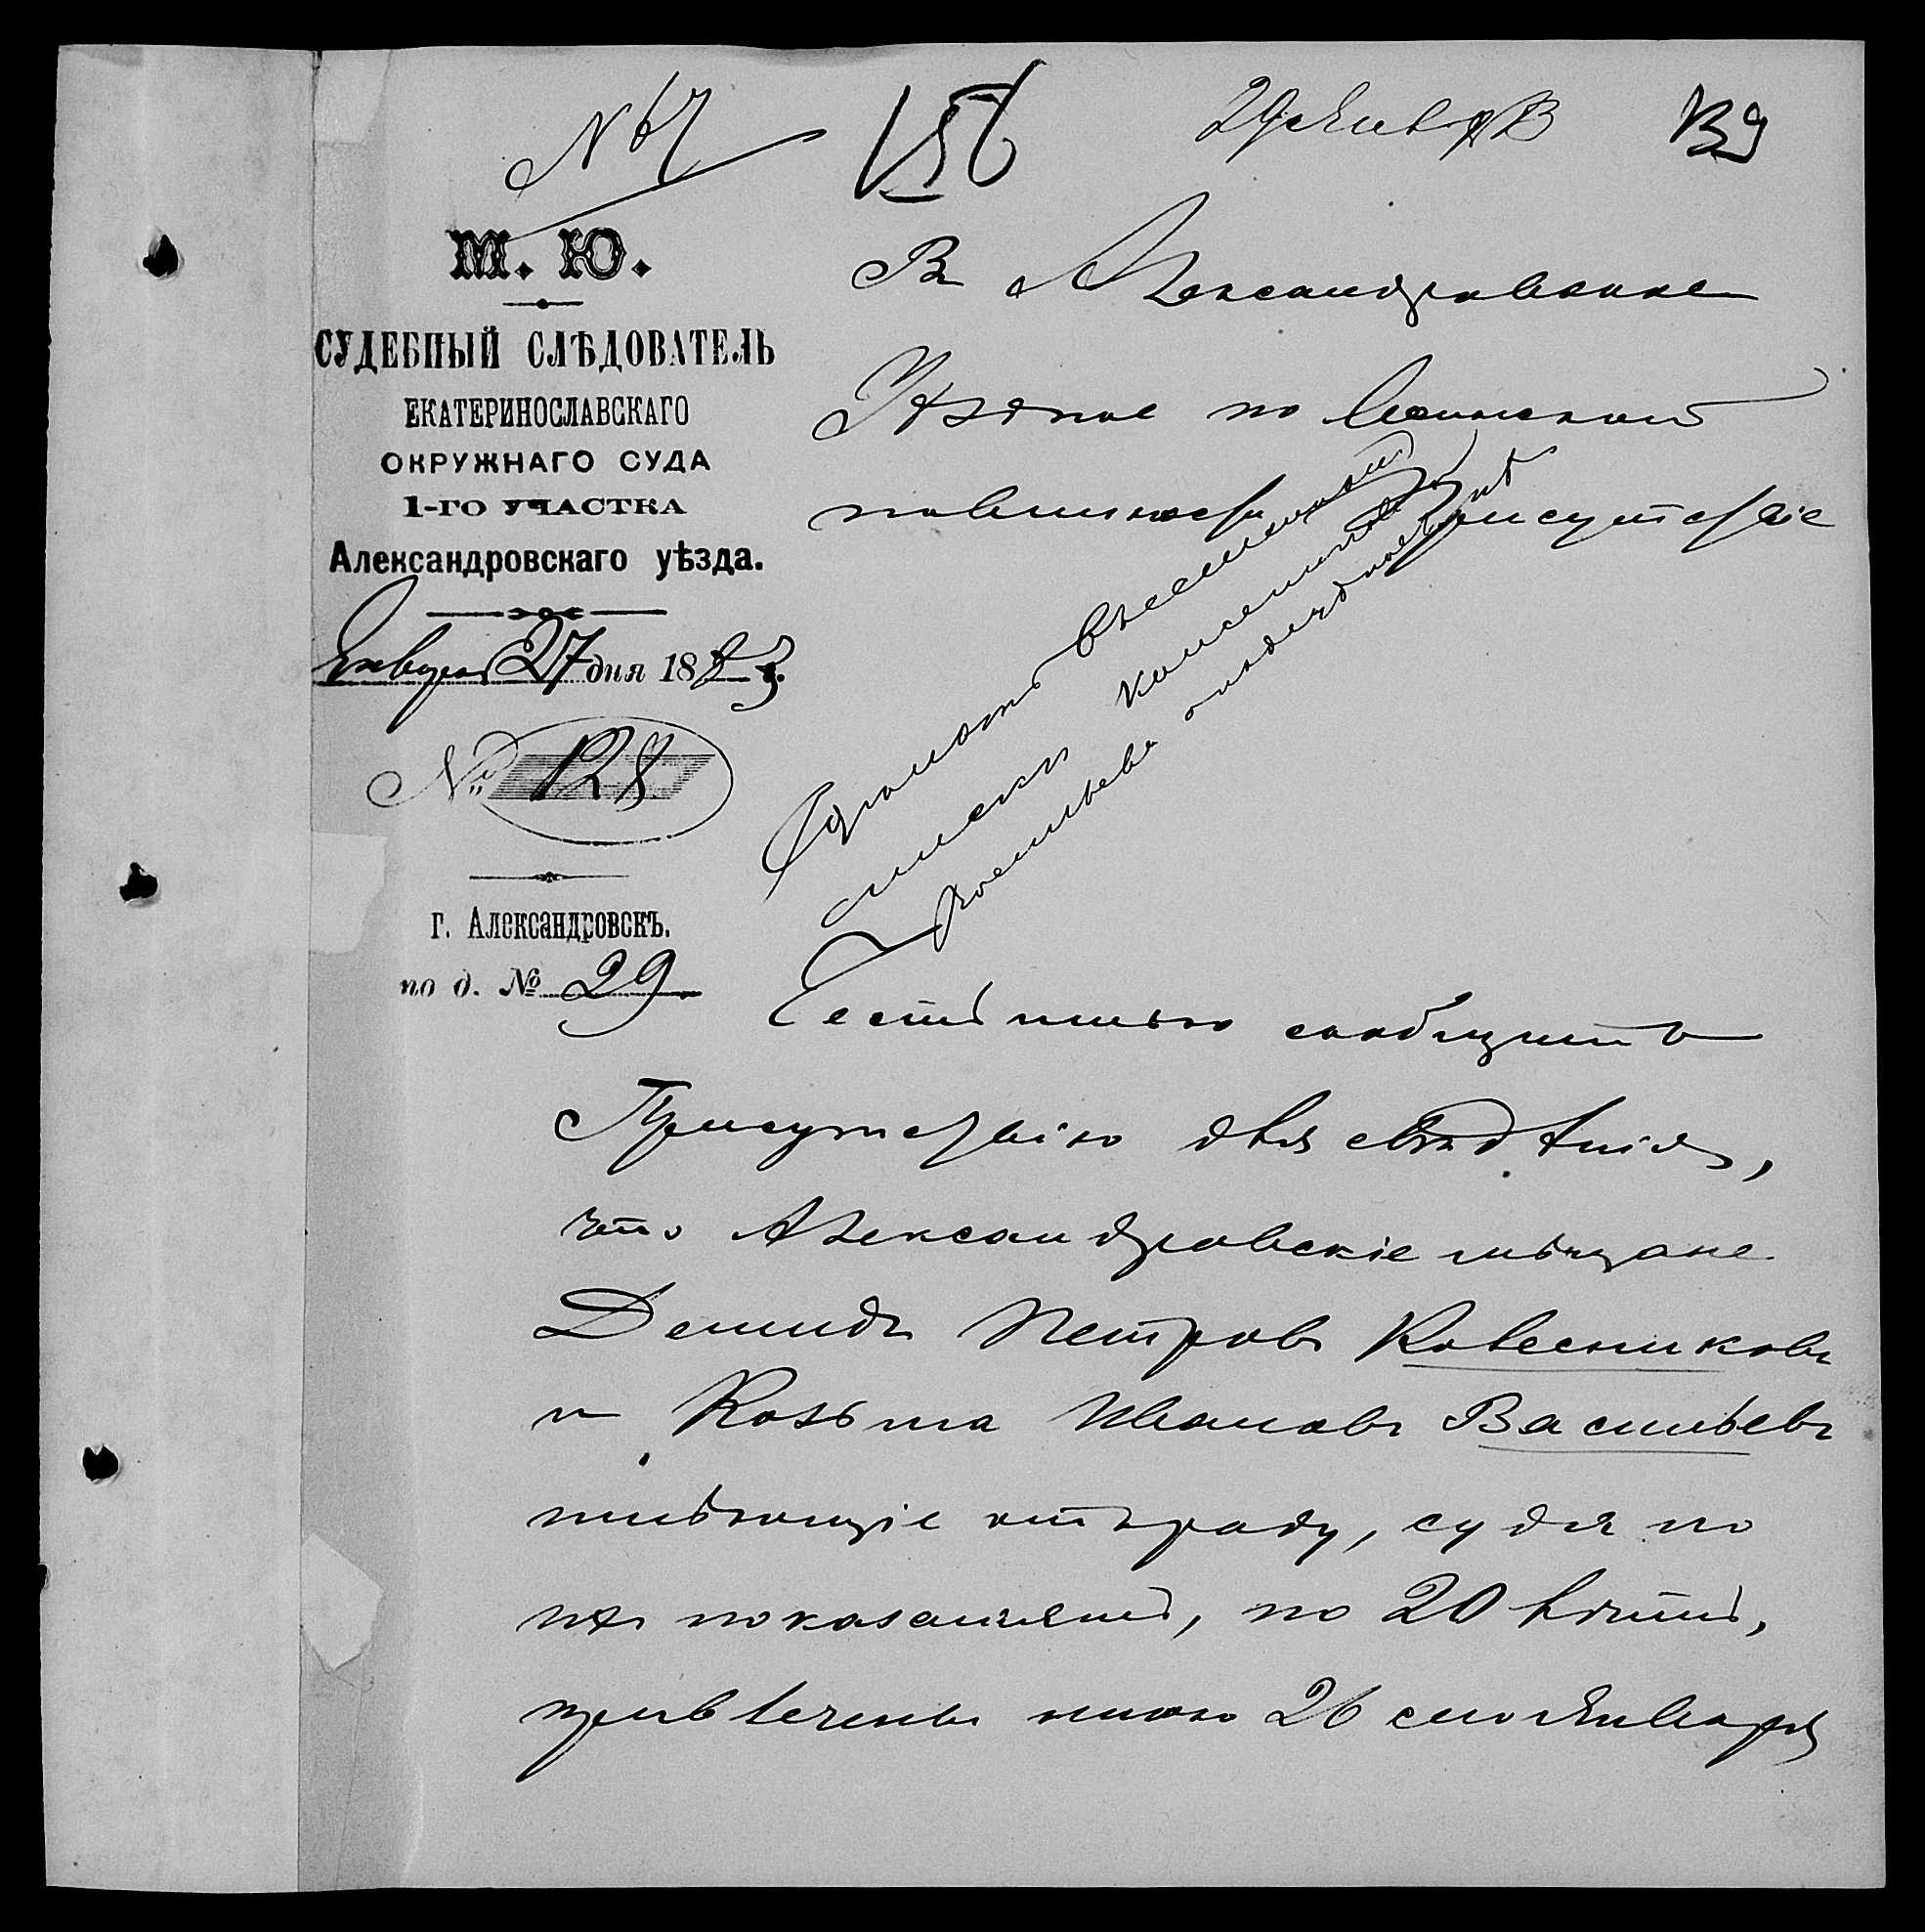 № 67
156
29 Января
139
М. Ю.
СУДЕБНЫЙ СЛѢДОВАТЕЛЬ
ЕКАТЕРИНОСЛАВСКАГО
ОКРУЖНАГО СУДА
1-ГО УЧАСТКА
Александровскаго уѣзда.
Января 27 дня 1883.
№ 128
г. Александровскъ.
по д. № 29
Въ Александровское
Уѣздное по Воинской
повинности Присутствіе
списки
Васильева
Честь имѣю сообщить
Присутствію для свѣдѣнія,
что Александровскіе мѣщане
Демидъ Петровъ Колесниковъ
и Козьма Ивановъ Васильевъ
имѣющіе отъ роду, судя по
ихъ показаніямъ, по 20 лѣтъ,
привлечены мною 26 сего Января